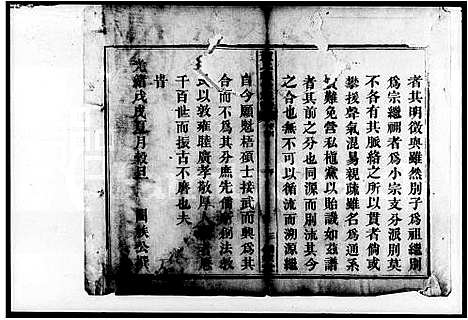 者其明徵與雖然別子為祖繼別
為宗繼禰者為小宗支分派別莫
不各有其脈絡之所以貫者倘或
攀援聲氣混易親疎雖名為通系
難免營私植黨以貽譏如茲譜
者其前之分也同源而別流其今
之合也無不可以循流而溯源繼
自今願愿梧碩士接武而興為其
合而不為其分庶先儒創法教
以敦雍睦廣孝敬厚人
千百世而振古不磨也夫
旹
光緒戊戌 月穀旦 闔族公譔